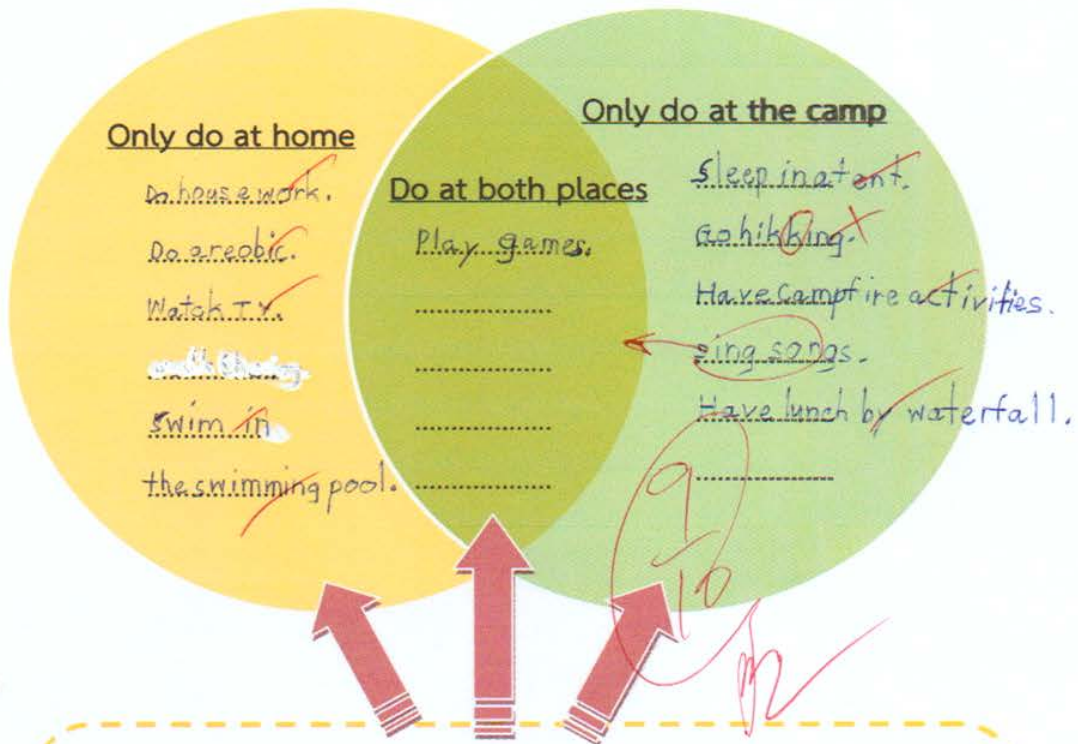 Only do at home
Do housework.
Do areobic.
Watch TV.
swim in
the swimming pool.
Do at both places
Play games.
Only do at the camp
Sleep in a tent.
Go hikking.
Have Campfire activities.
sing songs.
Have lunch by waterfall.
9
10